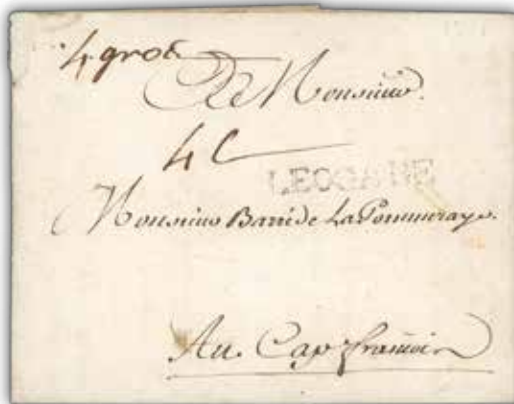 4 gros
A Monsieur
4 L
LEOGANE
Monsieur Barré de La Pommeraye
Au Cap français